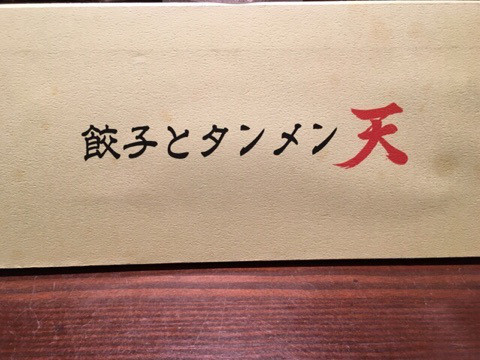 餃子とタンメン天